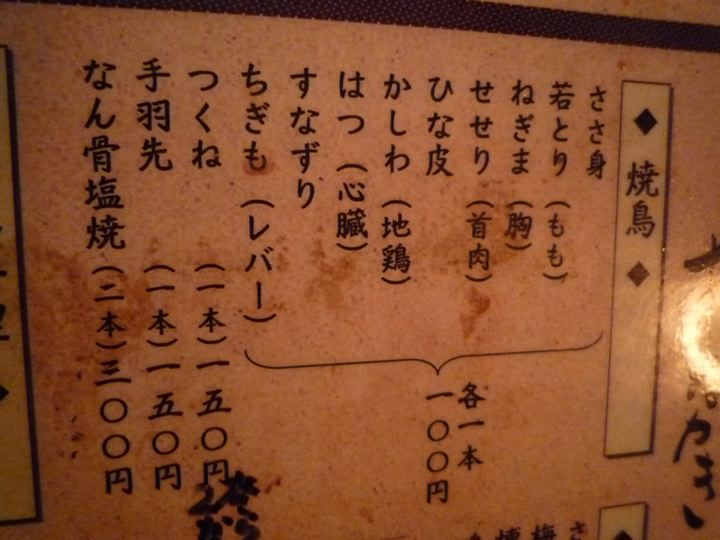 ◆ 焼鳥 ◆
ささ身
若とり(もも)
ねぎま(胸)
せせり(首肉)
ひな皮
かしわ(地鶏)
はつ(心臓)
すなずり
ちぎも(レバー)
各一本
一〇〇円
つくね(一本)一五〇円
手羽先(一本)一五〇円
なん骨塩焼(二本)三〇〇円